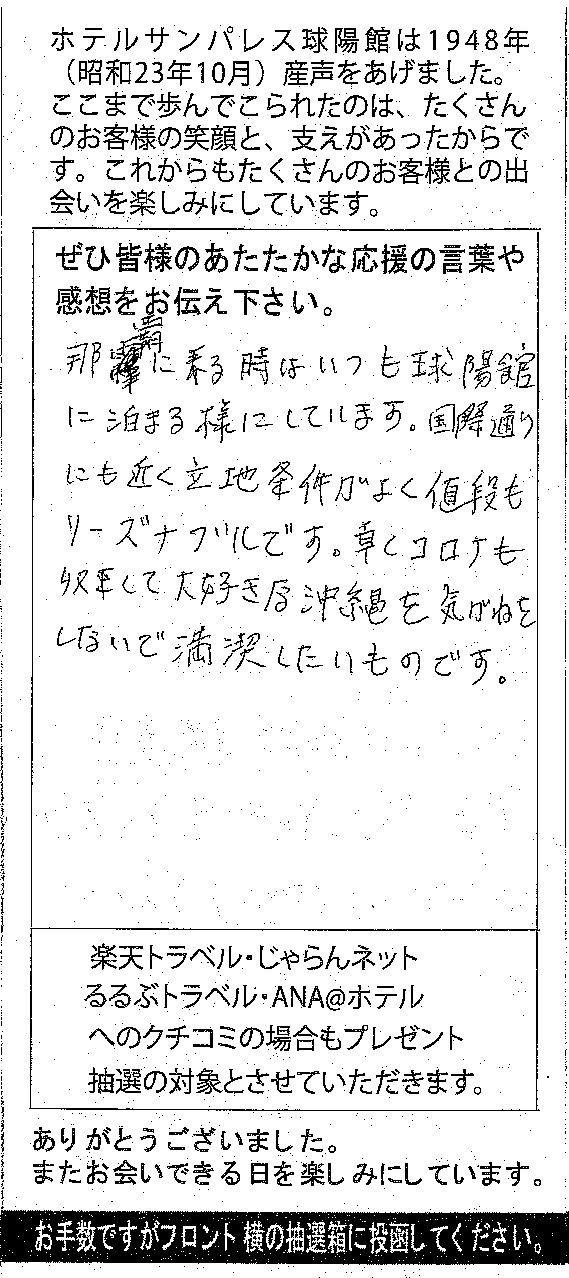 ホテルサンパレス球陽館は1948年
（昭和23年10月）産声をあげました。
ここまで歩んでこられたのは、たくさん
のお客様の笑顔と、支えがあったからで
す。これからもたくさんのお客様との出
会いを楽しみにしています。
ぜひ皆様のあたたかな応援の言葉や
感想をお伝え下さい。
那覇に来る時はいつも球陽館
に泊まる様にしています。国際通り
にも近く立地条件がよく値段も
リーズナブルです。早くコロナも
収束して大好きな沖縄を気がねを
しないで満喫したいものです。
楽天トラベル・じゃらんネット
るるぶトラベル・ANA@ホテル
へのクチコミの場合もプレゼント
抽選の対象とさせていただきます。
ありがとうございました。
またお会いできる日を楽しみにしています。
お手数ですがフロント横の抽選箱に投函してください。